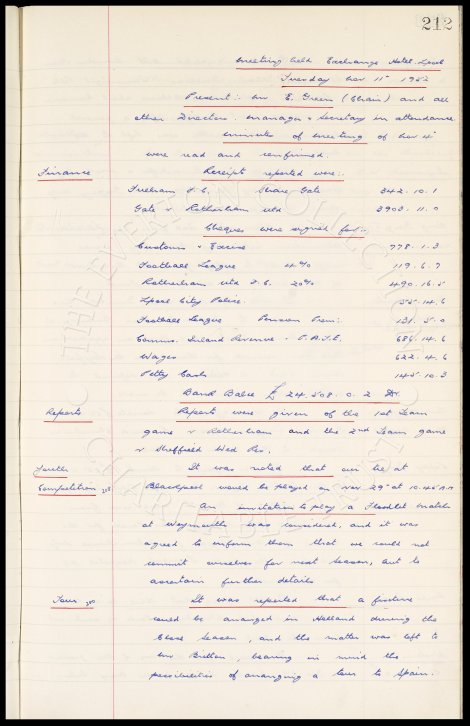 212
Meeting held Exchange Hotel L'pool
Tuesday Nov 11th 1952
Present:- Mr E. Green (Chair) and all
other Directors. Manager & Secretary in attendance.
Minutes of Meeting of Nov 4th
were read and confirmed.
Finance Receipts reported were:-
Fulham F.C. Share Gate 342.10.1
Gate v Rotherham Utd 3903.11.0
Cheques were signed for:-
Customs & Excise 778.1.3
Football League 4% 119.6.7
Rotherham Utd F.C. 20% 490.16.5
L'pool City Police. 55.14.6
Football League Pension Prem: 131.5.0
Comms. Inland Revenue - P.A.Y.E. 686.14.6
Wages 622.4.6
Petty Cash 145.10.3
Bank Balce £24,508.0.2 Dr.
Reports Reports were given of the 1st Team
game v Rotherham and the 2nd Team game
v Sheffield Wed Res.
Youth It was noted that our tie at
Competition Blackpool would be played on Nov 29th at 10.45 A.M
An invitation to play a Floodlit match
at Weymouth was considered, and it was
agreed to inform them that we could not
commit ourselves for next season, but to
ascertain further details
Tour It was reported that a fixture
could be arranged in Holland during the
Close Season, and the matter was left to
Mr Britton, bearing in mind the
possibilities of arranging a tour to Spain.
THE EVERTON COLLECTION
CHARITABLE TRUST